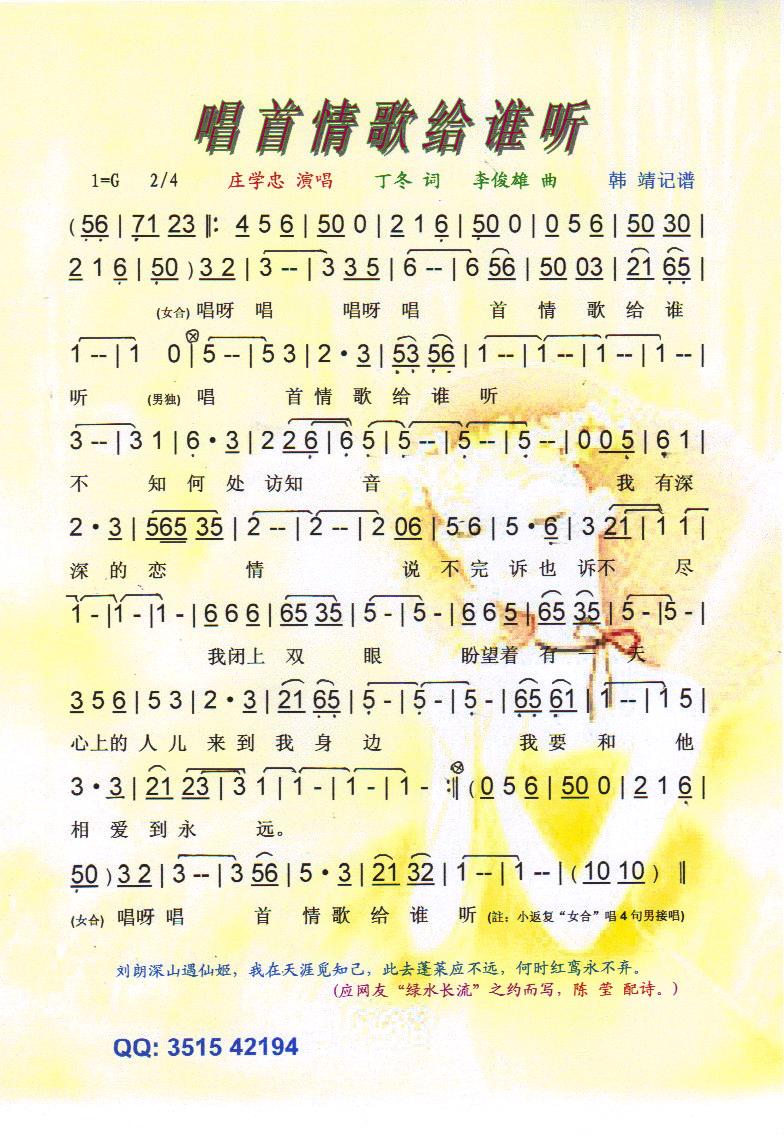 唱首情歌给谁听
1=G 2/4 庄学忠 演唱 丁冬 词 李俊雄 曲 韩 靖记谱
(56 | 71 23 ‖: 4 5 6 | 50 0 | 2 1 6 | 50 0 | 0 5 6 | 50 30 |
2 1 6 | 50 ) 3 2 | 3 -- | 3 3 5 | 6 -- | 6 56 | 50 03 | 21 65 |
(女合) 唱呀 唱 唱呀 唱 首 情 歌 给 谁
1 -- | 1 0 | 5 -- | 5 3 | 2 · 3 | 53 56 | 1 -- | 1 -- | 1 -- | 1 -- |
听 (男独) 唱 首 情 歌 给 谁 听
3 -- | 3 1 | 6 · 3 | 2 2 6 | 6 5 | 5 -- | 5 -- | 5 -- | 0 0 5 | 6 1 |
不 知 何 处 访知 音 我 有深
2 · 3 | 565 35 | 2 -- | 2 -- | 2 06 | 5 6 | 5 · 6 | 3 21 | 1 1 |
深 的 恋 情 说 不 完 诉 也 诉不 尽
1 - | 1 - | 1 - | 6 6 6 | 65 35 | 5 - | 5 - | 6 6 5 | 65 35 | 5 - | 5 - |
我闭上 双 眼 盼望着 有 一 天
3 5 6 | 5 3 | 2 · 3 | 21 65 | 5 - | 5 - | 5 - | 65 61 | 1 -- | 1 5 |
心上的 人 儿 来 到 我 身 边 我 要 和 他
3 · 3 | 21 23 | 3 1 | 1 - | 1 - | 1 - :‖ ( 0 5 6 | 50 0 | 2 1 6 |
相 爱 到 永 远。
50 ) 3 2 | 3 -- | 3 56 | 5 · 3 | 21 32 | 1 -- | 1 -- | ( 10 10 ) ‖
(女合) 唱呀 唱 首 情 歌 给 谁 听 (註：小返复“女合”唱4句男接唱)
刘朗深山遇仙姬，我在天涯觅知己，此去蓬莱应不远，何时红鸾永不弃。
(应网友“绿水长流”之约而写，陈 莹 配诗。)
QQ: 3515 42194